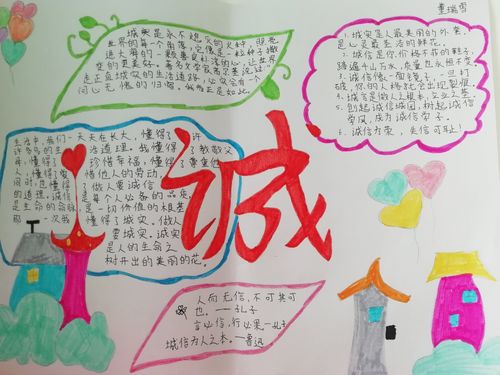 董瑞雪
城实是永不熄灭的火种，照亮
世界的每个角落，它像一粒种子播
变的更美好。著名文学家西塞说过"
走正直城实的生活道路，必定会有个
问心无愧的归宿。
1.城实是人最美丽的外套，
是心灵最圣洁的鲜花。
2.诚信是你价格不菲的鞋子，
踏遍千山万水，质量也永恒不变。
3.诚信像一面镜子，一旦打
破，你的人格就会出现裂痕。
4.诚信是做人之根本，立业之基。
5.创起诚信城园，树起诚信
学风，成为诚信学子。
6.诚信为荣，失信可耻！
生活中，我们一天天在长大，懂得了许
许多多的生活道理。我懂得了孝敬父
母，懂得了珍惜幸福，懂得了尊重他
人，懂得了珍惜他人的劳动，
同时，也懂得了做人要诚信
的道理。诚信是每个人必备的品质，
是生命的命脉，是一切价值的根基
那一次我懂得了城实，做人
要城实。诚实
是人的生命之
树开出的美丽的花。
诚
人而无信，不可其可
也。——孔子
言必信，行必果——孔子
城信为人之本。——鲁迅